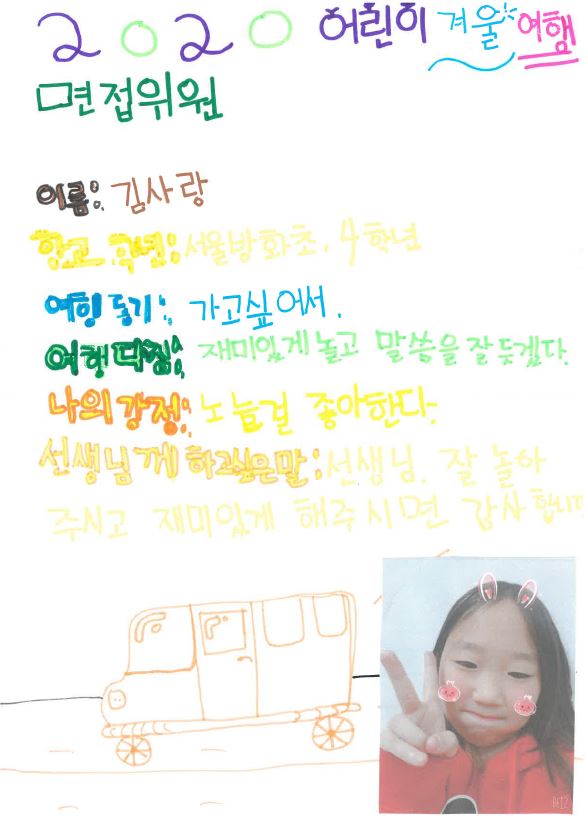 2020 어린이 겨울 여행
면접위원
이름: 김사랑
학교 학년: 서울방화초, 4학년
여행 동기: 가고싶어서.
여행 다짐: 재미있게 놀고 말씀을 잘 듣겠다.
나의 강점: 노는걸 좋아한다.
선생님께 하고싶은말: 선생님, 잘 놀아
주시고 재미있게 해주시면 감사합니다